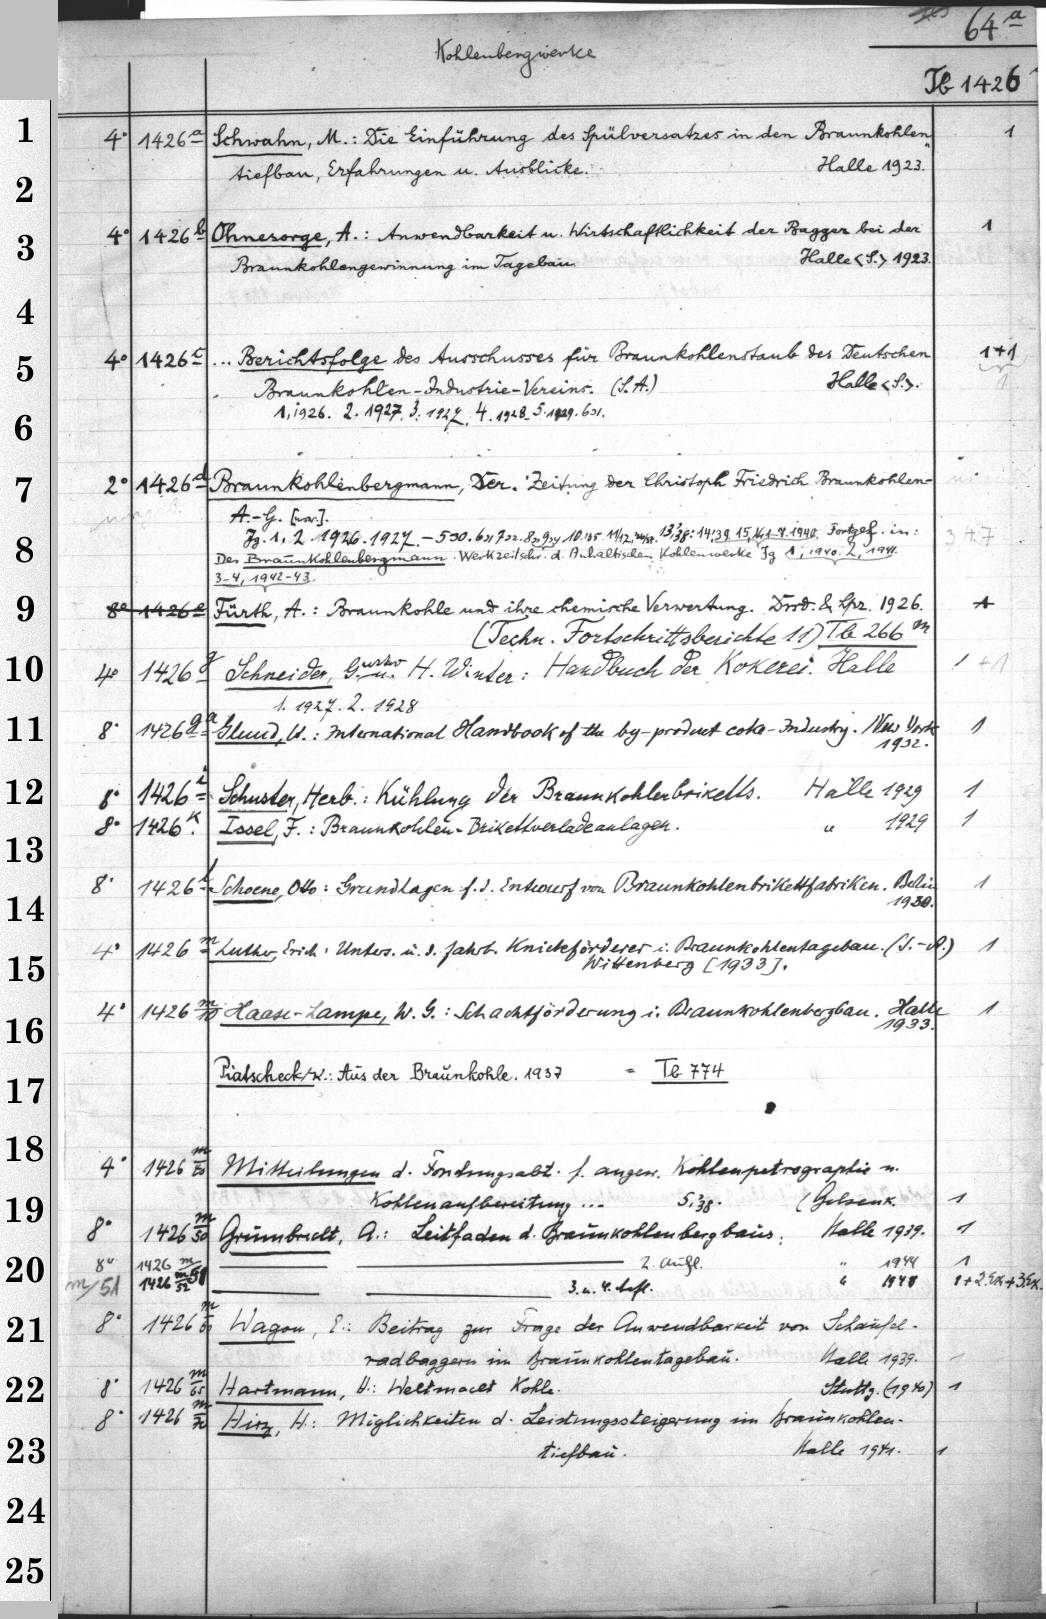 64 a
Kohlenbergwerke
Tb 1426
1 4° 1426 a Schwahn, M.: Die Einführung des Spülversatzes in den Braunkohlen- 1
2 tiefbau, Erfahrungen u. Ausblicke. Halle 1923.
3 4° 1426 b Ohnesorge, A.: Anwendbarkeit u. Wirtschaftlichkeit der Bagger bei der 1
Braunkohlengewinnung im Tagebau. Halle <S.> 1923.
4
5 4° 1426 c ... Berichtsfolge des Ausschusses für Braunkohlenstaub des Deutschen 1+1
Braunkohlen-Industrie-Vereins. (S.A.) Halle <S.>. 1
6 1, 1926. 2. 1927. 3. 1927. 4. 1928. 5. 1929. 6 31.
7 2° 1426 d Braunkohlenbergmann, Der. Zeitung der Christoph Friedrich Braunkohlen-
A.-G. [usw.].
8 Jg. 1, 2 1926. 1927. – 5 30. 6 31 7 32. 10 35 13 38. 14 39 1940. Fortges. in: 347
Der Braunkohlenbergmann. Werkzeitschr. d. Anhaltischen Kohlenwerke Jg 1, 1940. 2, 1941.
3-4, 1942-43.
9 8° 1426 e Fürth, A.: Braunkohle und ihre chemische Verwertung. Drsd. & Lpz. 1926. 1
(Techn. Fortschrittsberichte 11) Tb 266 m
10 4° 1426 g Schneider, Gustav u. H. Winter: Handbuch der Kokerei. Halle 1 +1
1. 1927. 2. 1928
11 8° 1426 g a Gluud, W.: International Handbook of the by-product coke-Industry. New York 1
1932.
12 8° 1426 i Schuster, Herb.: Kühlung der Braunkohlenbriketts. Halle 1929 1
8° 1426 k. Issel, F.: Braunkohlen-Brikettverladeanlagen. " 1929 1
13
14 8° 1426 l Schoene, Otto: Grundlagen f. d. Entwurf von Braunkohlenbrikettfabriken. Berlin 1
1930.
15 4° 1426 m Luther, Erich: Unters. ü. d. fahrb. Knickförderer i. Braunkohlentagebau. (S.-A.) 1
Wittenberg [1933].
16 4° 1426 m/10 Haase-Lampe, W. G.: Schachtförderung i. Braunkohlenbergbau. Halle 1
1933.
17 Piatscheck, K.: Aus der Braunkohle. 1937 = Tb 774
18 4° 1426 m/20 Mitteilungen d. Forschungsabt. f. angew. Kohlenpetrographie u.
19 Kohlenaufbereitung ... 5, 38. (Gelsenk. 1
8° 1426 m/50 Grumbrecht, A.: Leitfaden d. Braunkohlenbergbaus. Halle 1939. 1
20 8° 1426 m/51 2. Aufl. " 1944 1
m/51 1426 m/52 3. u. 4. Aufl. " 1948 1+2.Ex+3.Ex.
21 8° 1426 m/60 Wagou, E.: Beitrag zur Frage der Anwendbarkeit von Schaufel-
radbaggern im Braunkohlentagebau. Halle 1939. 1
22 8° 1426 m/65 Hartmann, H.: Weltmacht Kohle. Stuttg. (1940) 1
8° 1426 m/70 Hirz, H.: Möglichkeiten d. Leistungssteigerung im Braunkohlen-
23 tiefbau. Halle 1941. 1
24
25